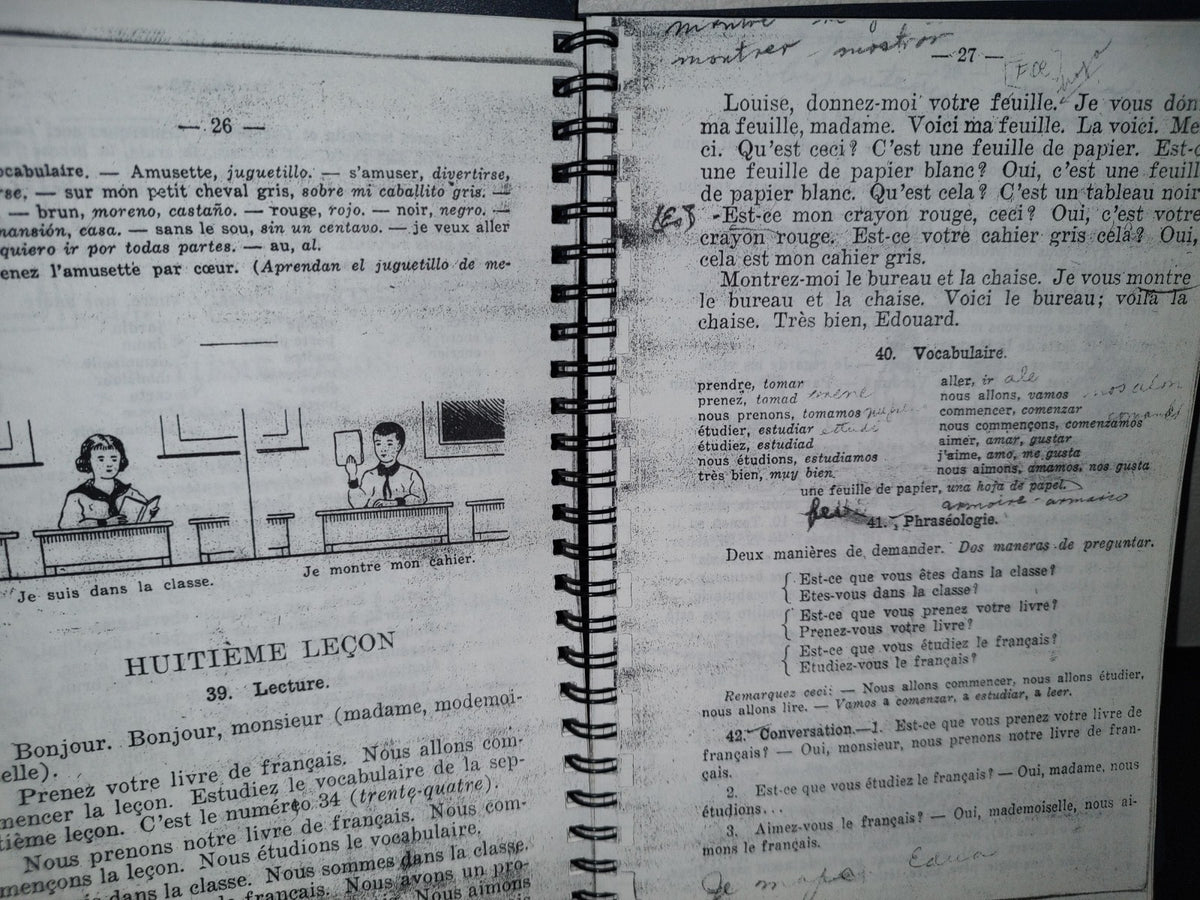 — 26 —
ocabulaire. — Amusette, juguetillo. — s'amuser, divertirse,
rse. — sur mon petit cheval gris, sobre mi caballito gris. —
— brun, moreno, castaño. — rouge, rojo. — noir, negro. —
mansión, casa. — sans le sou, sin un centavo. — je veux aller
quiero ir por todas partes. — au, al.
enez l'amusette par cœur. (Aprendan el juguetillo de me-
Je suis dans la classe.
Je montre mon cahier.
HUITIÈME LEÇON
39. Lecture.
Bonjour. Bonjour, monsieur (madame, modemoi-
elle).
Prenez votre livre de français. Nous allons com-
mencer la leçon. Estudiez le vocabulaire de la sep-
tième leçon. C'est le numéro 34 (trente-quatre).
Nous prenons notre livre de français. Nous com-
mençons la leçon. Nous étudions le vocabulaire.
dans la classe. Nous sommes dans la classe.
français. Nous avons un pro-
Nous aimons
montre
montrer mostrar
— 27 —
Louise, donnez-moi votre feuille. Je vous don
ma feuille, madame. Voici ma feuille. La voici. Me
ci. Qu'est ceci? C'est une feuille de papier. Est-c
une feuille de papier blanc? Oui, c'est une feuill
de papier blanc. Qu'est cela? C'est un tableau noir
-Est-ce mon crayon rouge, ceci? Oui, c'est votre
crayon rouge. Est-ce votre cahier gris cela? Oui,
cela est mon cahier gris.
Montrez-moi le bureau et la chaise. Je vous montre
le bureau et la chaise. Voici le bureau; voilà la
chaise. Très bien, Edouard.
40. Vocabulaire.
prendre, tomar
prenez, tomad
nous prenons, tomamos
étudier, estudiar etudi
étudiez, estudiad
nous étudions, estudiamos
très bien, muy bien.
aller, ir ale
nous allons, vamos nosalon
commencer, comenzar
nous commençons, comenzamos
aimer, amar, gustar
j'aime, amo, me gusta
nous aimons, amamos, nos gusta
une feuille de papier, una hoja de papel.
armoire - armario
41. Phraséologie.
Deux manières de demander. Dos maneras de preguntar.
Est-ce que vous êtes dans la classe?
Etes-vous dans la classe?
Est-ce que vous prenez votre livre?
Prenez-vous votre livre?
Est-ce que vous étudiez le français?
Etudiez-vous le français?
Remarquez ceci: — Nous allons commencer, nous allons étudier,
nous allons lire. — Vamos a comenzar, a estudiar, a leer.
42. Conversation.—1. Est-ce que vous prenez votre livre de
français? — Oui, monsieur, nous prenons notre livre de fran-
çais.
2. Est-ce que vous étudiez le français? — Oui, madame, nous
étudions...
3. Aimez-vous le français? — Oui, mademoiselle, nous ai-
mons le français.